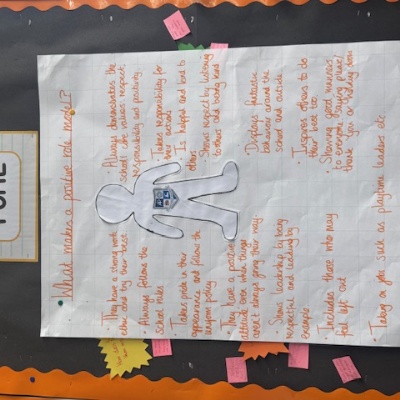 What makes a positive role model?
· They have a strong work
ethic and try their best
· Always follows the
school rules
· Takes pride in their
appearance and follows the
uniform policy
· They have a positive
attitude even when things
aren't always going their way
· Show leadership by being
respectful and leading by
example
· Includes those who may
feel left out
· Taking on jobs such as playtime leaders etc
· Always demonstrates the
school core values respect,
responsibility and positivity
· Takes responsibility for
their actions
· Is happy and kind to
others
· Shows respect by listening
to others and being kind
· Displays fantastic
behaviour around the
school and outside
· Inspires others to do
their best too
· Showing good manners
to everyone, saying please/
thank you or holding doors